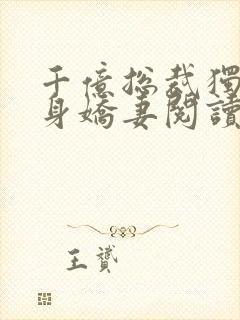 千億總裁獨
身嬌妻閱讀
王贇